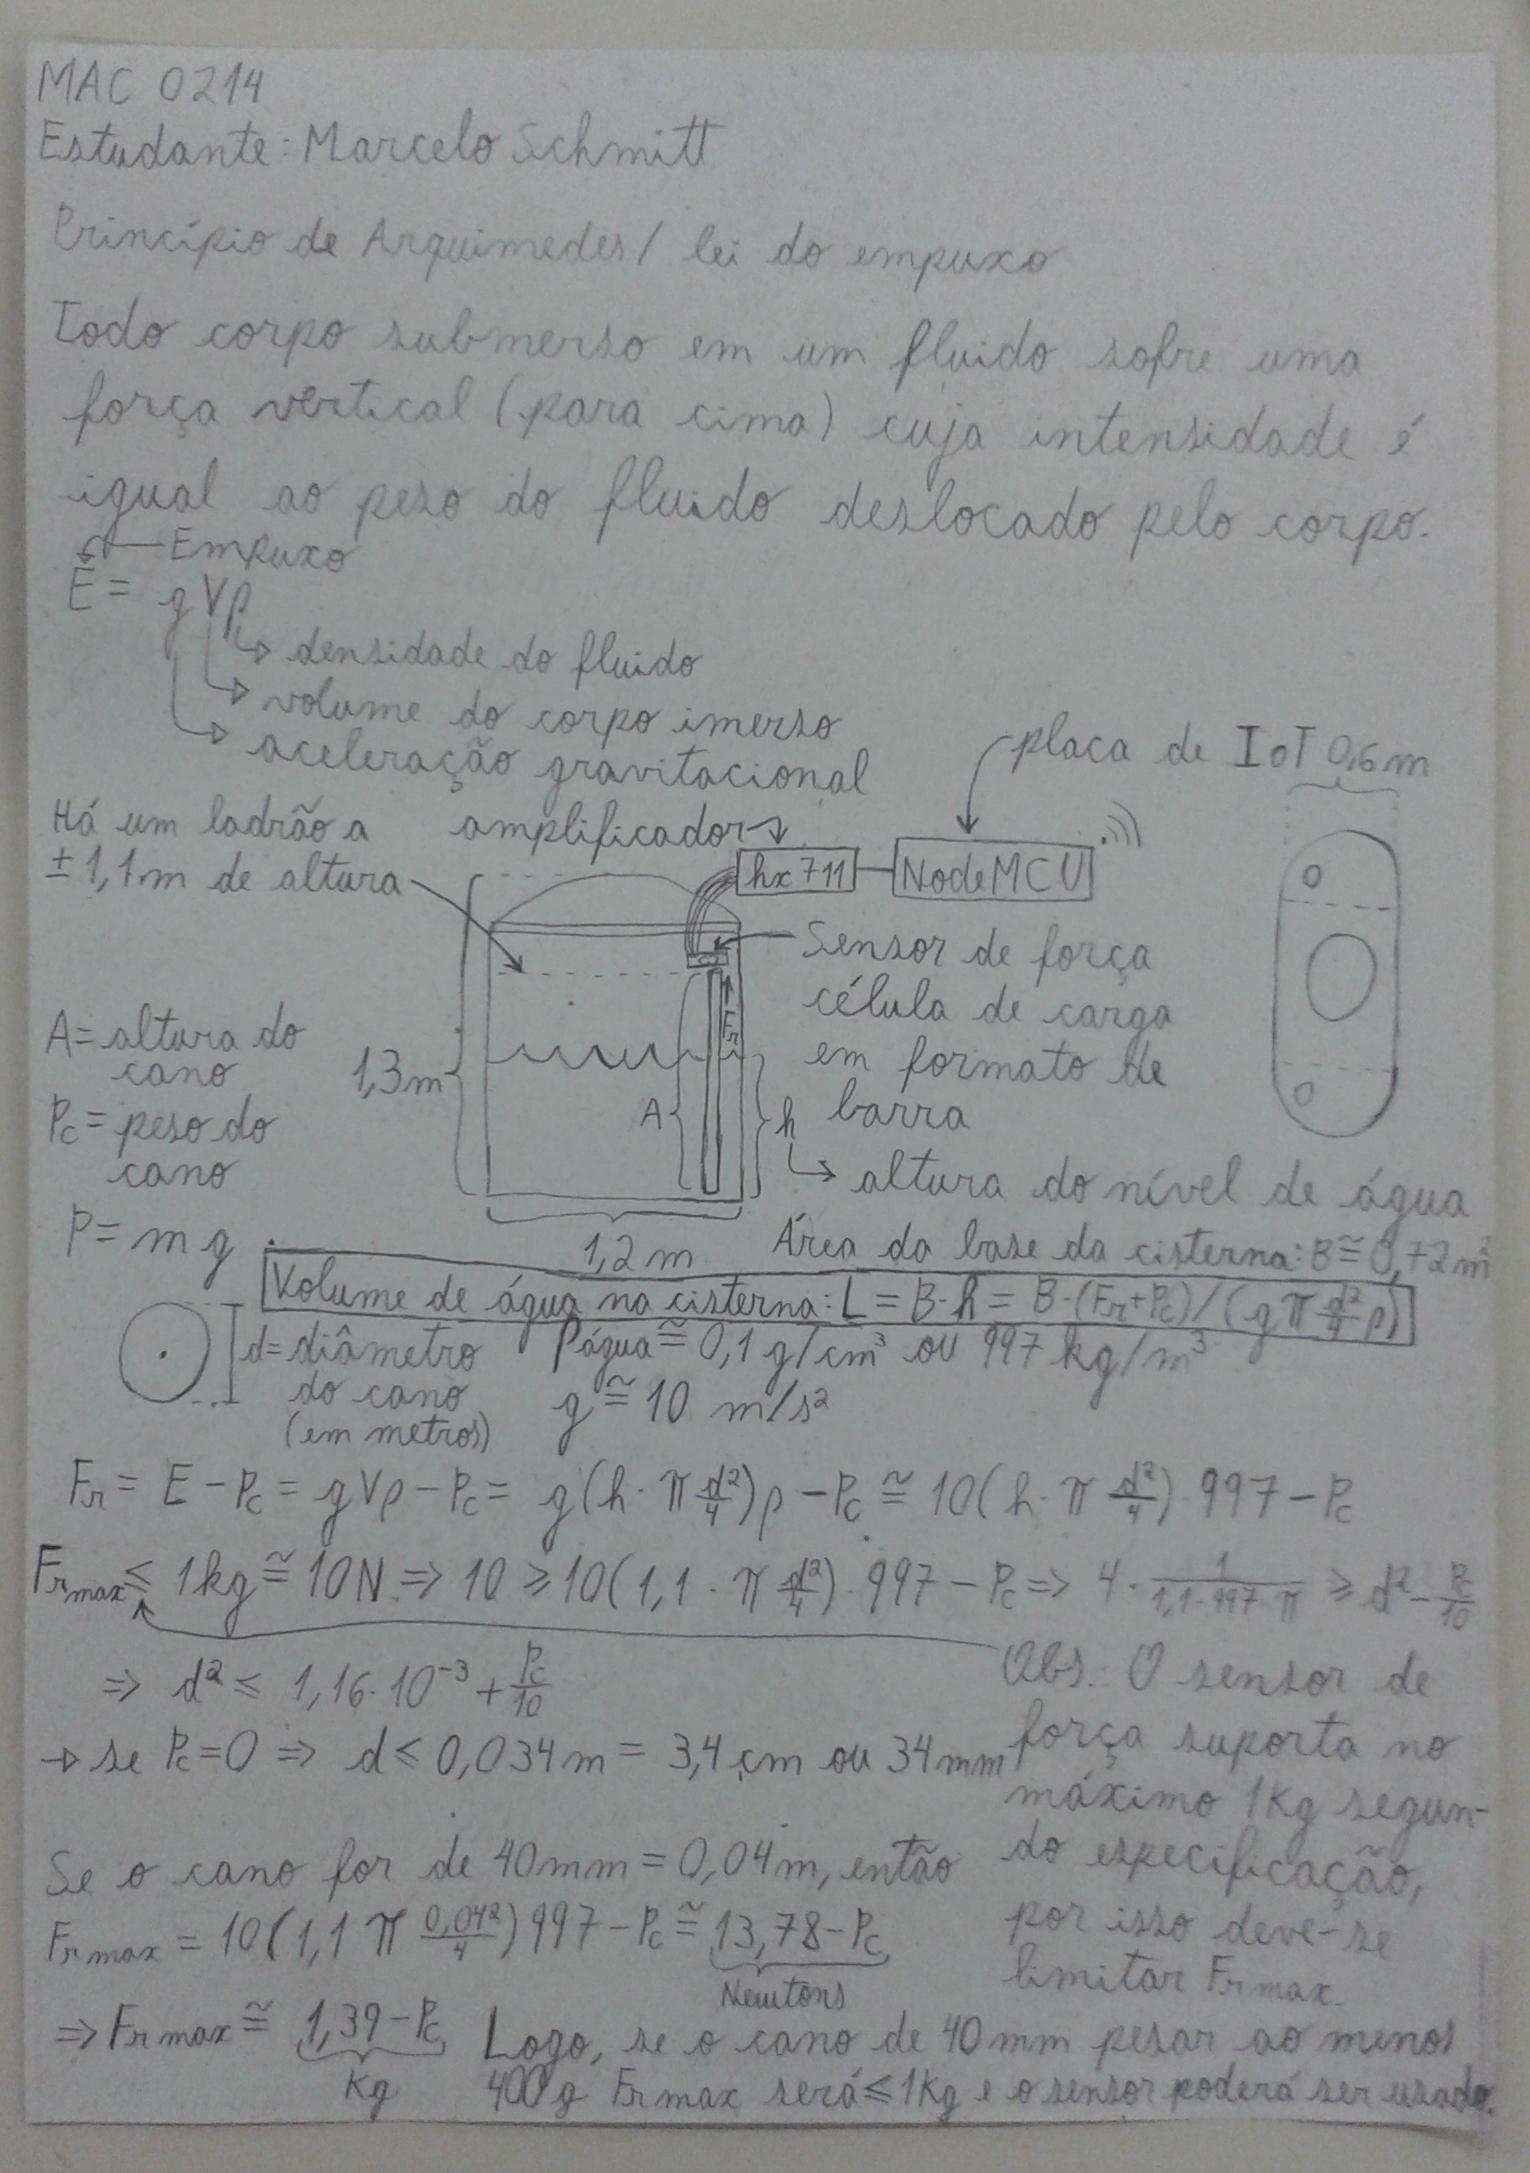 MAC 0214
Estudante: Marcelo Schmitt
Princípio de Arquimedes/ lei do empuxo
Todo corpo submerso em um fluido sofre uma
força vertical (para cima) cuja intensidade é
igual ao peso do fluido deslocado pelo corpo.
Empuxo
E = g V ρ
densidade do fluido
volume do corpo imerso
aceleração gravitacional
placa de IoT
0,6 m
Há um ladrão a
± 1,1m de altura
amplificador
hx711
NodeMCU
Sensor de força
célula de carga
em formato de
barra
Fr
A = altura do
cano
Pc = peso do
cano
P = m g
1,3m
A
h
altura do nível de água
1,2 m
Área da base da cisterna: B ≅ 0,72 m²
Volume de água na cisterna: L = B·h = B·(Fr+Pc)/(g π d²/4 ρ)
d = diâmetro
do cano
(em metros)
ρágua ≅ 0,1 g/cm³ ou 997 kg/m³
g ≅ 10 m/s²
Fr = E - Pc = g V ρ - Pc = g(h · π d²/4) ρ - Pc ≅ 10(h · π d²/4) · 997 - Pc
Fr max ≤ 1kg ≅ 10N ⇒ 10 ≥ 10(1,1 · π d²/4) · 997 - Pc ⇒ 4 · 1/(1,1·997·π) ≥ d² - Pc/10
⇒ d² ≤ 1,16·10⁻³ + Pc/10
→ se Pc = 0 ⇒ d ≤ 0,034m = 3,4cm ou 34mm
Obs.: O sensor de
força suporta no
máximo 1Kg segun-
do especificação,
por isso deve-se
limitar Fr max.
Se o cano for de 40mm = 0,04m, então
Fr max = 10(1,1 π 0,04²/4) 997 - Pc ≅ 13,78 - Pc
Newtons
⇒ Fr max ≅ 1,39 - Pc
Kg
Logo, se o cano de 40mm pesar ao menos
400g Fr max será ≤ 1Kg e o sensor poderá ser usado.